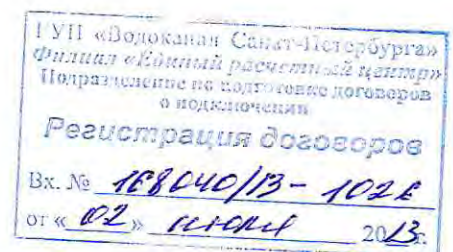 ГУП «Водоканал Санкт-Петербурга»
Филиал «Единый расчетный центр»
Подразделение по подготовке договоров
о подключении
Регистрация договоров
Вх. № 168040/13 - 102
от « 02 » 2013 г.